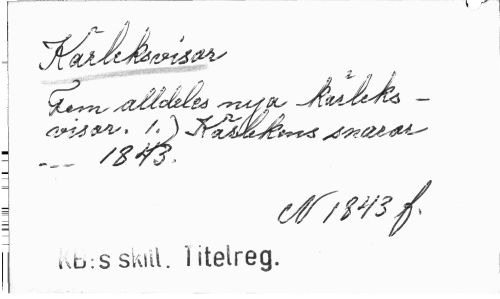 Kärleksvisor
Fem alldeles nya kärleks-
visor. 1.) Kärlekens snaror
--- 1843.
N 1843 f.
KB:s skill. Titelreg.